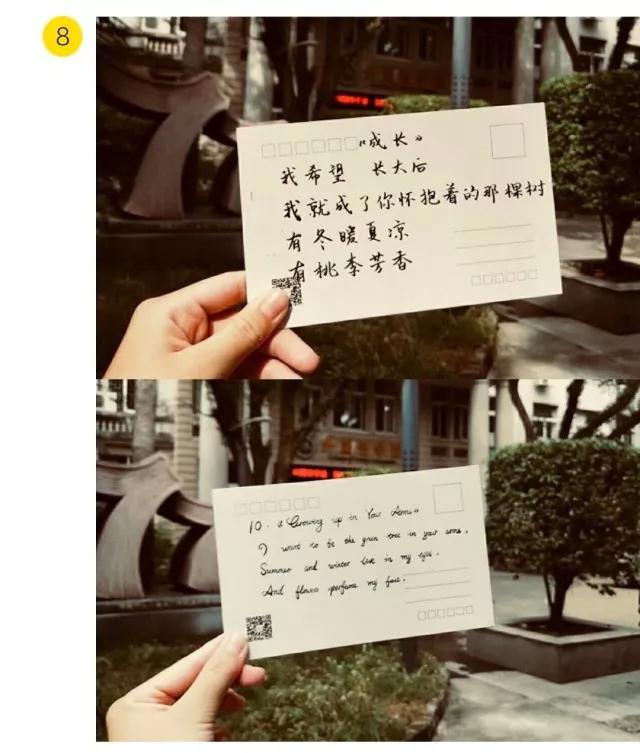 8
《成长》
我希望 长大后
我就成了你怀抱着的那棵树
有冬暖夏凉
有桃李芳香
10. 《Growing up in Your Arms》
I want to be the green tree in your arms,
Summer and winter live in my eyes.
And flowers perfume my face.